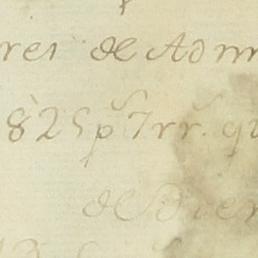 res de Adm
825 ps 7 rrs. q
de Bien